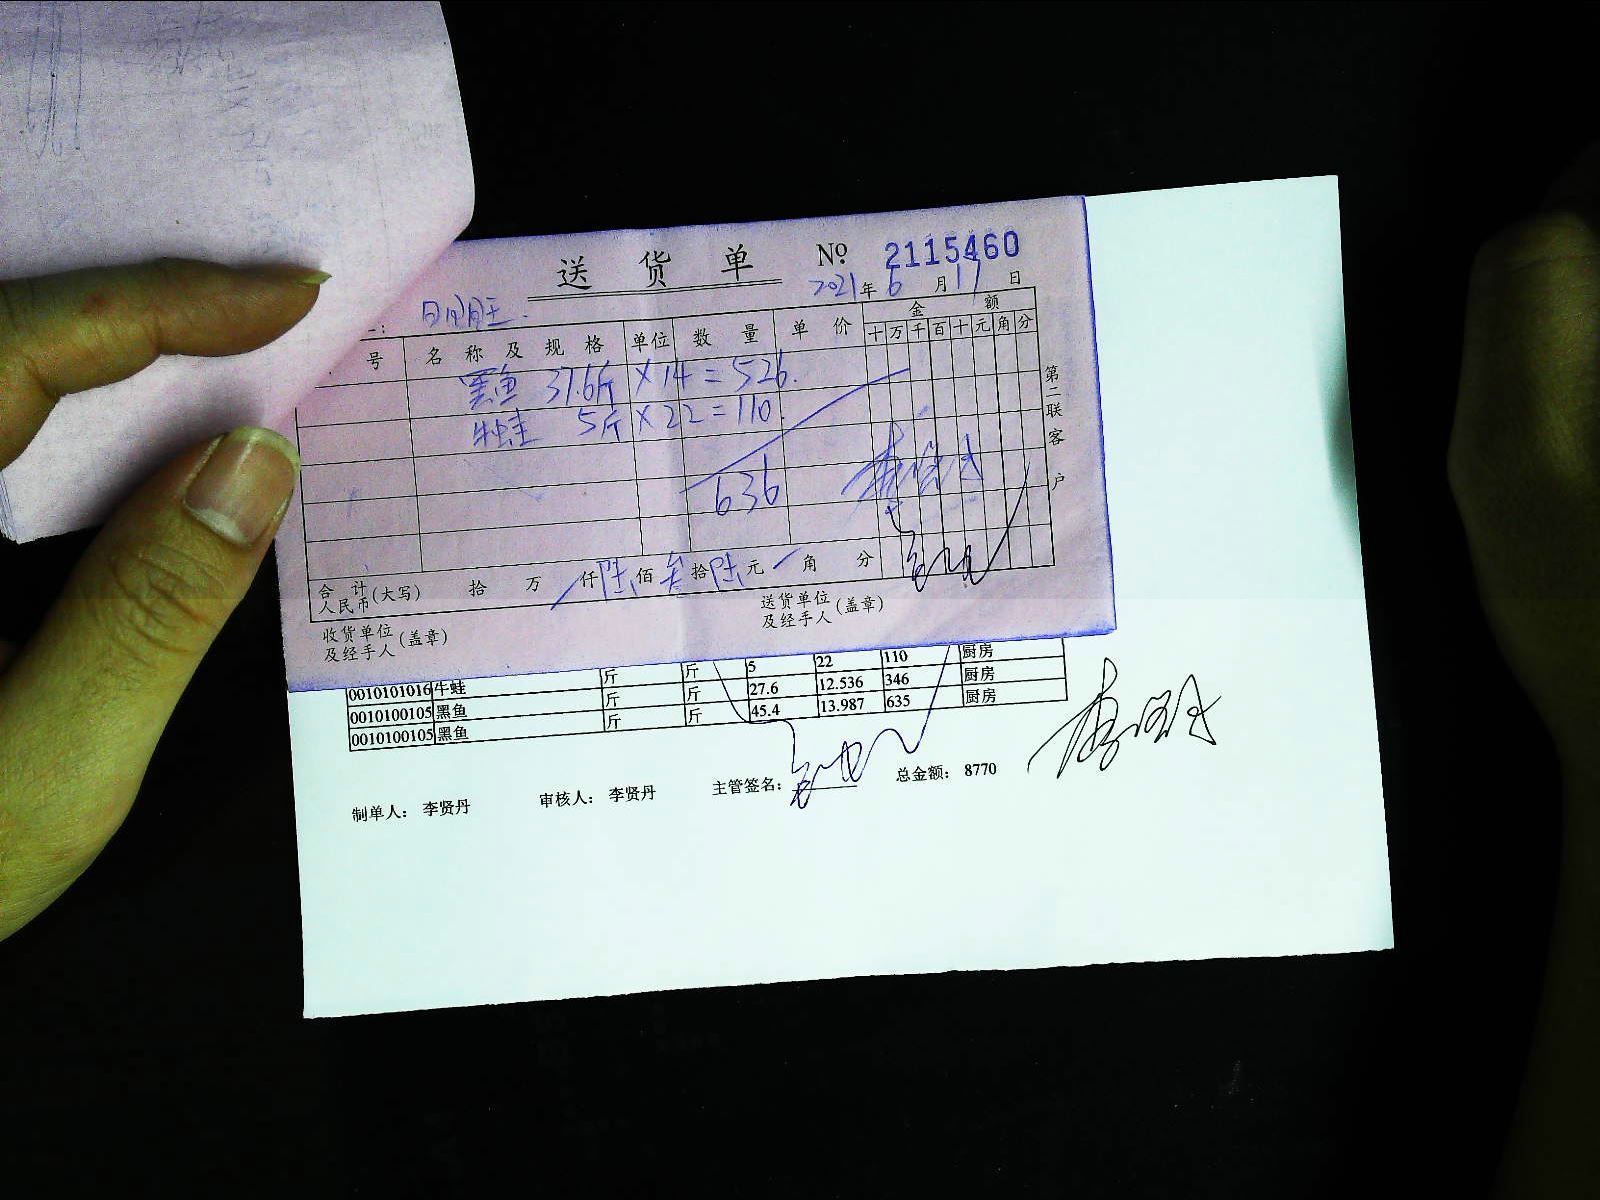 送货单 № 2115460
2021年6月17日
号 名称及规格 单位 数量 单价 金额
十万千百十元角分
黑鱼 37.6斤 × 14 = 526.
牛蛙 5斤 × 22 = 110.
636
第二联客户
合计人民币(大写) 拾 万 仟陆佰叁拾陆元 角 分
收货单位及经手人(盖章) 送货单位及经手人(盖章)
0010101016 牛蛙 斤 斤 5 22 110 厨房
0010100105 黑鱼 斤 斤 27.6 12.536 346 厨房
0010100105 黑鱼 斤 斤 45.4 13.987 635 厨房
制单人： 李贤丹 审核人： 李贤丹 主管签名： 总金额： 8770